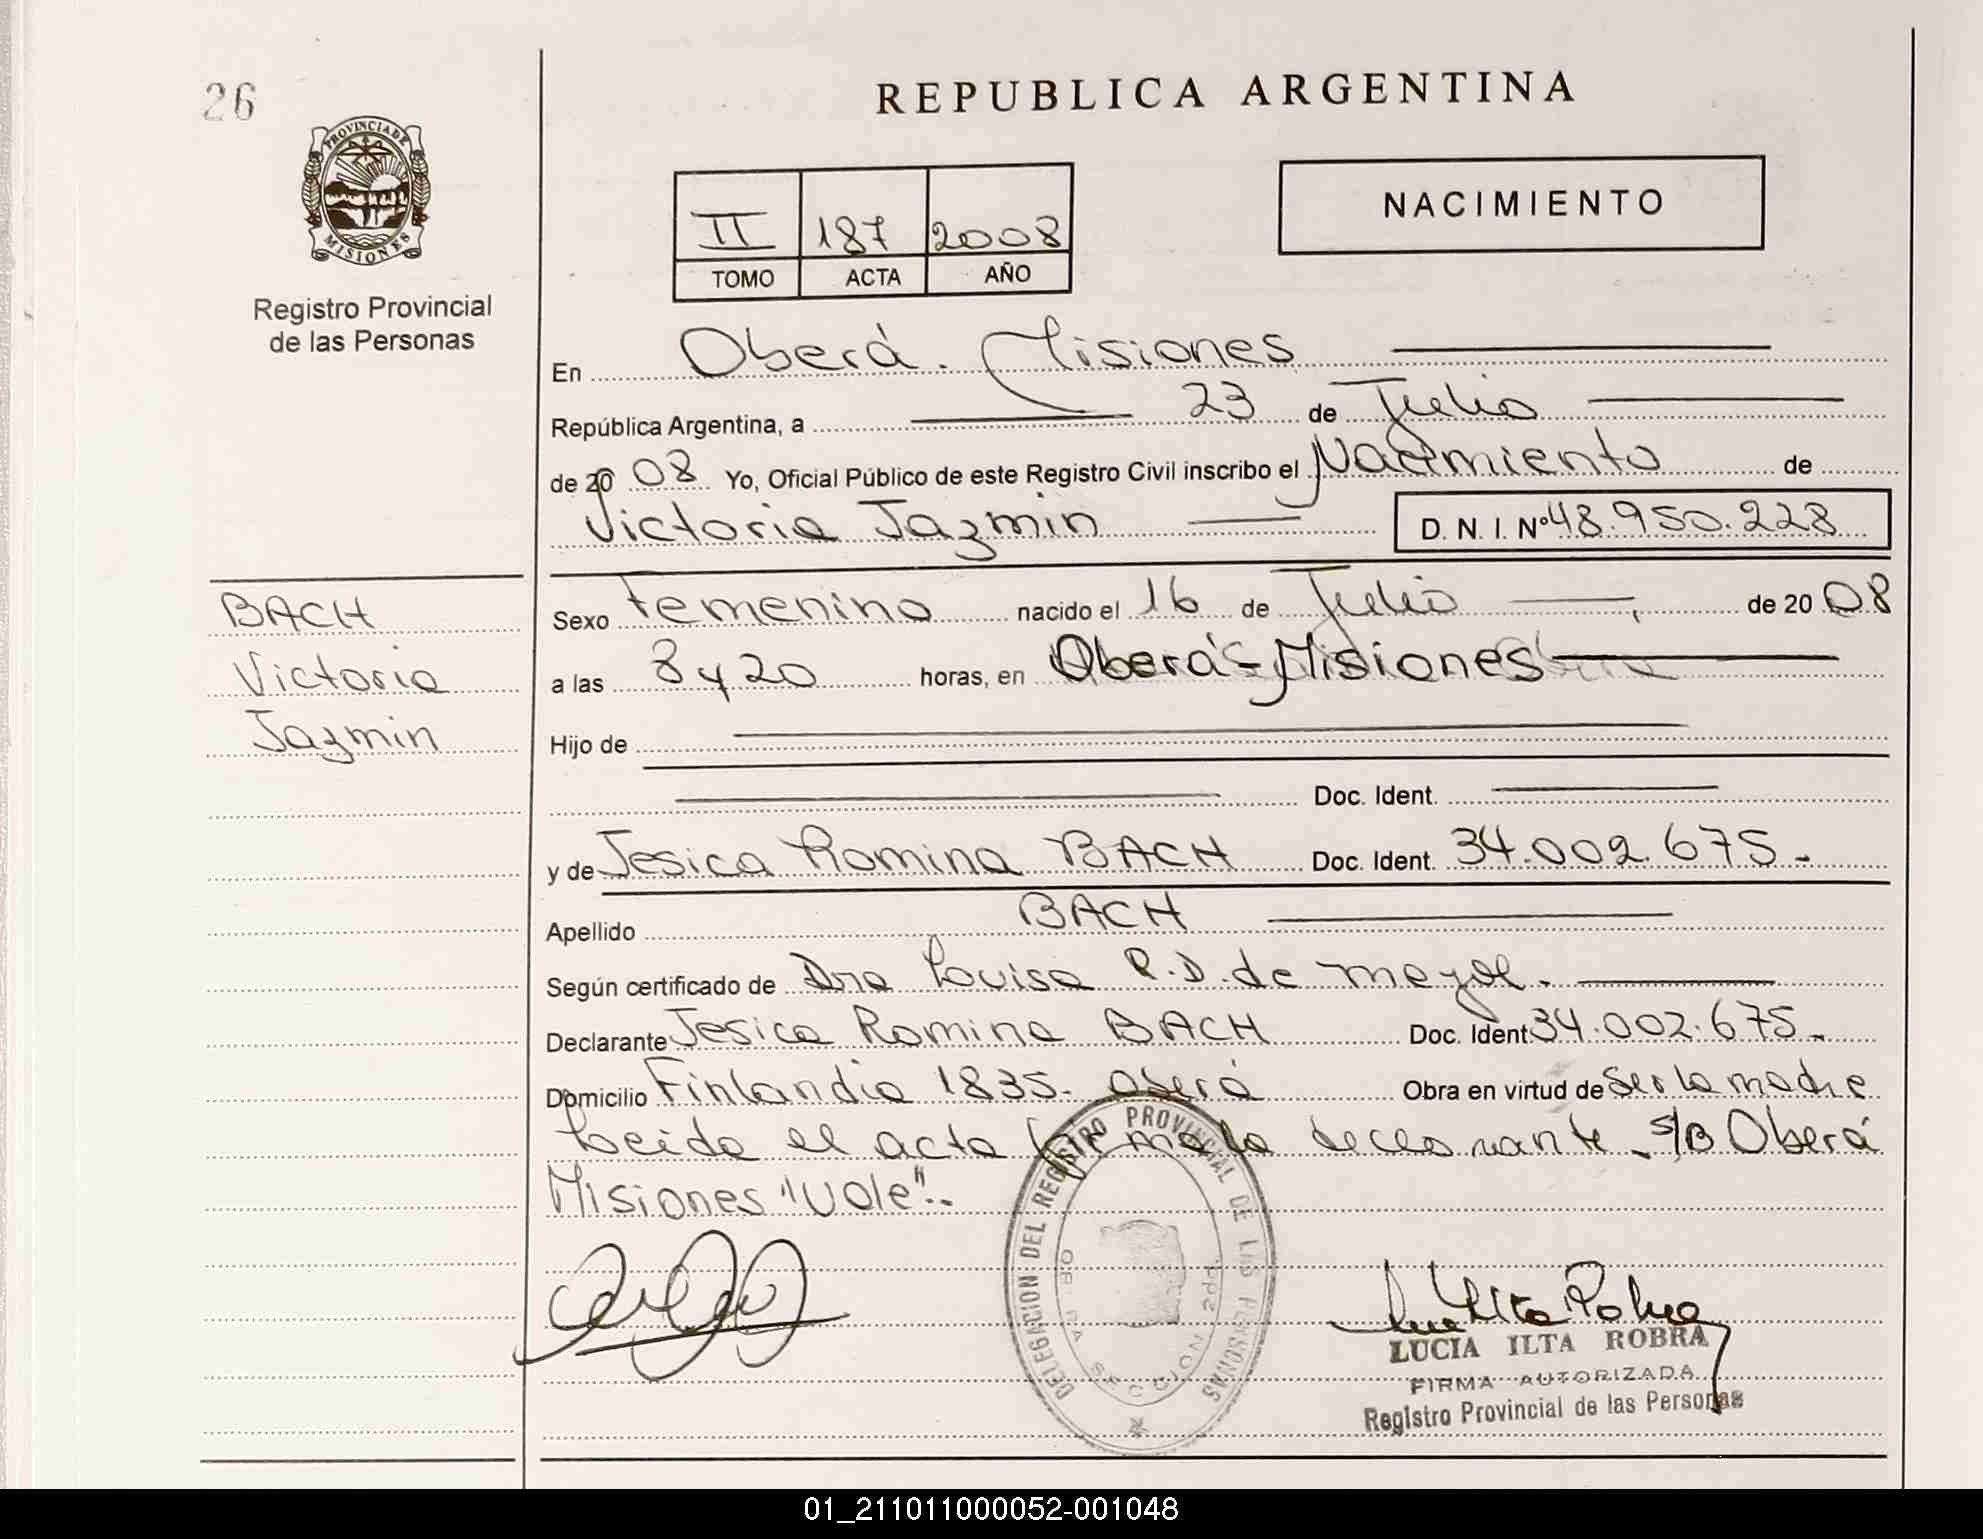 26
PROVINCIA DE
MISIONES
Registro Provincial
de las Personas
REPUBLICA ARGENTINA
II 187 2008
TOMO ACTA AÑO
NACIMIENTO
En Oberá. Misiones
República Argentina, a 23 de Julio
de 20 08 Yo, Oficial Público de este Registro Civil inscribo el Nacimiento de
Victoria Jazmin D. N. I. Nº 48.950.228
BACH
Victoria
Jazmin
Sexo Femenino nacido el 16 de Julio de 20 08
a las 8 y 20 horas, en Oberá - Misiones
Hijo de
Doc. Ident.
y de Jesica Romina BACH Doc. Ident. 34.002.675.-
Apellido BACH
Según certificado de Dra Louisa R.D. de
Declarante Jesica Romina BACH Doc. Ident. 34.002.675.-
Domicilio Finlandia 1835.- Oberá Obra en virtud de ser la madre
Leida el acta firma la declarante - S/B Oberá
Misiones "Vale".-
DELEGACION DEL REGISTRO PROVINCIAL DE LAS PERSONAS
SECCION 2da
LUCIA ILTA ROBRA
FIRMA AUTORIZADA
Registro Provincial de las Personas
01_211011000052-001048